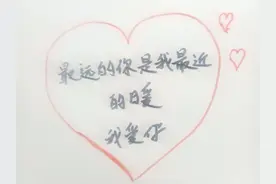 最远的你是我最近
的暖
我爱你